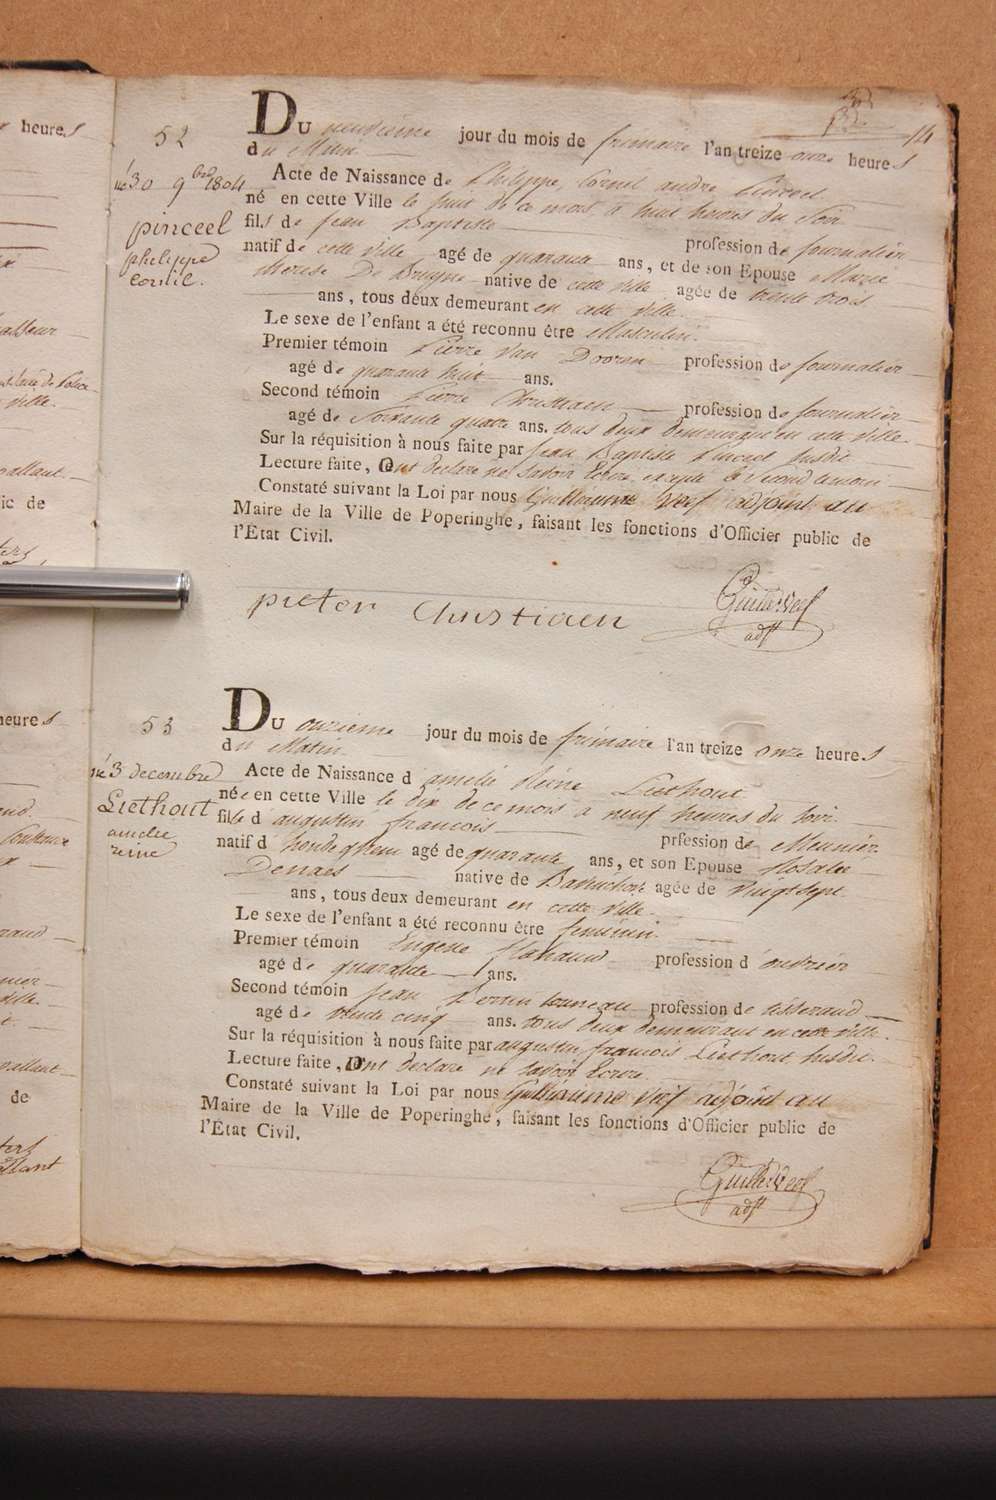 heures
52
né 30 9bre 1804
pinceel
philippe
cornil.
14
DU neuvième jour du mois de frimaire l'an treize onze heures
du Matin
Acte de Naissance de Philippe, Cornil andré Pinceel
né en cette Ville le huit de ce mois, à huit heures du Soir
fils de Jean Baptiste profession de journalier
natif de cette ville agé de quarante ans, et de son Epouse Marie
therese De Bruyne native de cette ville agée de trente trois
ans, tous deux demeurant en cette ville.
Le sexe de l'enfant a été reconnu être Masculin.
Premier témoin Pierre Van Dooren profession de journalier
agé de quarante huit ans.
Second témoin Pierre Christiaen profession de journalier
agé de Soixante quatre ans. tous deux demeurant en cette ville.
Sur la réquisition à nous faite par Jean Baptiste Pinceel susdit
Lecture faite, Ont declaré ne Savoir Ecrire, excepté le Second temoin
Constaté suivant la Loi par nous Guilliaume Veef adjoint au
Maire de la Ville de Poperinghe, faisant les fonctions d'Officier public de
l'Etat Civil.
pieter Christiaen
Guille Veef
adjt
heures
53
né 3 decembre
Liethout
amelie
reine
DU onzieme jour du mois de frimaire l'an treize onze heures
du Matin
Acte de Naissance d'amelie Reine Liethout
née en cette Ville le dix de ce mois à neuf heures du soir.
fille d'augustin francois prfession de Meunier
natif d'hondeghem agé de quarante ans, et son Epouse Rosalie
Denaes native de agée de vingt sept
ans, tous deux demeurant en cette ville.
Le sexe de l'enfant a été reconnu être feminin.
Premier témoin Eugene flahaud profession d'ouvrier
agé de quarante ans.
Second témoin Jean profession de tisserand
agé de trente cinq ans. tous deux demeurant en cette ville.
Sur la réquisition à nous faite par augustin francois Liethout susdit.
Lecture faite, Ont declaré ne Savoir Ecrire.
Constaté suivant la Loi par nous Guilliaume Veef adjoint au
Maire de la Ville de Poperinghe, faisant les fonctions d'Officier public de
l'État Civil.
Guille Veef
adjt